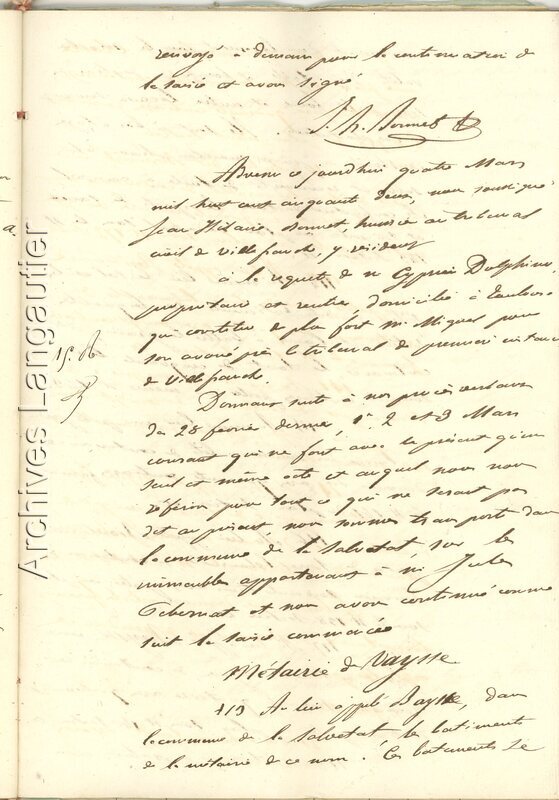 renvoyé à demain pour la continuation de
la saisie et avons signé
J. h. Bonnet
Avenu ce jourd'hui quatre Mars
mil huit cent cinquante deux, nous soussigné
Jean Hilaire Bonnet, huissier au tribunal
civil de Villefranche, y résidant
à la requête de mr Cyprien Delphine
propriétaire et rentier, domicilié à Toulouse
qui constitue de plus fort mr Miquel pour
son avoué près le tribunal de premier instance
de Villefranche.
15. R
Donnant suite à nos procès verbaux
du 28 février dernier, 1er 2 et 3 Mars
courant qui ne font avec le présent qu'un
seul et même acte et auquel nous nous
référons pour tout ce qui ne serait pas
dit au présent, nous sommes transporté dans
la commune de la Salvetat, sur les
immeubles appartenant à mr Jules
et nous avons continué comme
suit la saisie commencée
Métairie de Vaysse
113 Au lieu appelé Baysse, dans
la commune de la Salvetat, les batiments
de la métairie de ce nom. Ces batiments se
Archives Langautier